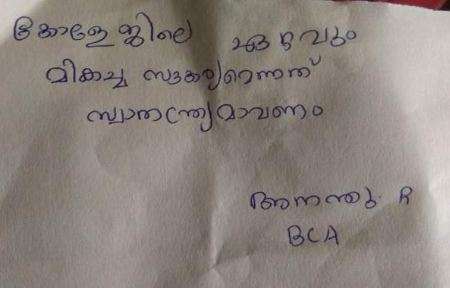 കോളേജിലെ ഏറ്റവും
മികച്ച സൗകര്യമെന്നത്
സ്വാതന്ത്ര്യമാവണം
അനന്തു R
BCA